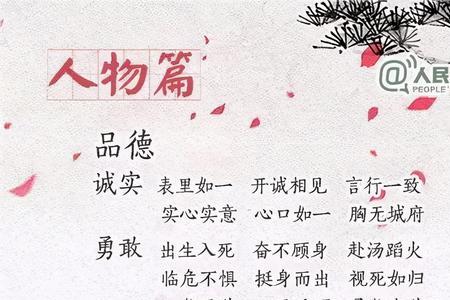 人物篇
@人民
PEOPLE'
品德
诚实 表里如一 开诚相见 言行一致
实心实意 心口如一 胸无城府
勇敢 出生入死 奋不顾身 赴汤蹈火
临危不惧 挺身而出 视死如归